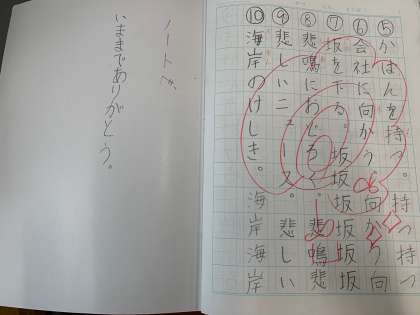 ⑤かばんを持つ。持つ持つ
⑥会社に向かう。向かう向
⑦坂を下る。坂坂坂坂坂坂
⑧悲鳴におどろく。悲鳴悲
⑨悲しいニュース。悲しい
⑩海岸のけしき。海岸海岸
ノートへ、
いままでありがとう。